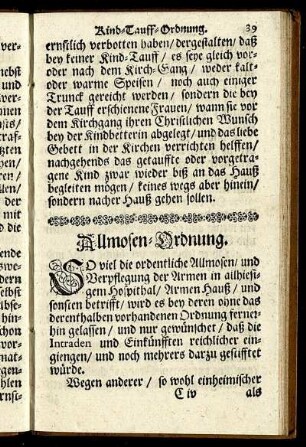 Kind-Tauff-Ordnung. 39
ernstlich verbotten haben / dergestalten / daß
bey keiner Kind-Tauff / es seye gleich vor-
oder nach dem Kirch-Gang / weder kalt-
oder warme Speisen / noch auch einiger
Trunck gereicht werden / sondern die bey
der Tauff erschienene Frauen / wann sie vor
dem Kirchgang ihren Christlichen Wunsch
bey der Kindbetterin abgelegt / und das liebe
Gebett in der Kirchen verrichten helffen /
nachgehends das getauffte oder vorgetra-
gene Kind zwar wieder biß an das Hauß
begleiten mögen / keines wegs aber hinein /
sondern nacher Hauß gehen sollen.
Allmosen-Ordnung.
SO viel die ordentliche Allmosen / und
Verpflegung der Armen in allhiesi-
gem Hospithal / Armen Hauß / und
sonsten betrifft / wird es bey deren ohne das
derenthalben vorhandenen Ordnung ferner-
hin gelassen / und nur gewünschet / daß die
Intraden und Einkünfften reichlicher ein-
giengen / und noch mehrers darzu gestifftet
würde.
Wegen anderer / so wohl einheimischer
C iv als